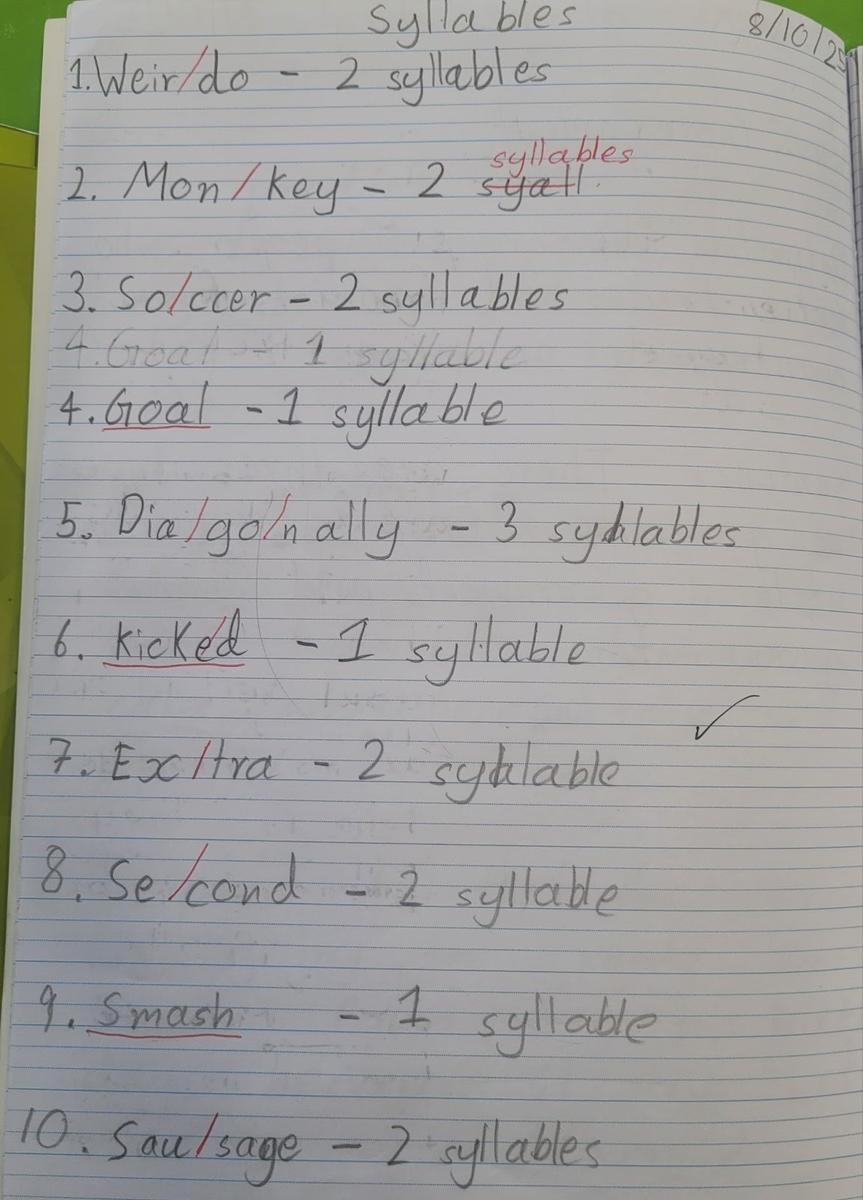 Syllables
8/10/25
1. Weir/do - 2 syllables
syllables
2. Mon/key - 2 syall.
3. So/ccer - 2 syllables
4. Goal - 1 syllable
4. Goal - 1 syllable
5. Dia/go/nally - 3 syllables
6. kicked - 1 syllable
7. Ex/tra - 2 syllable
8. Se/cond - 2 syllable
9. Smash - 1 syllable
10. Sau/sage - 2 syllables